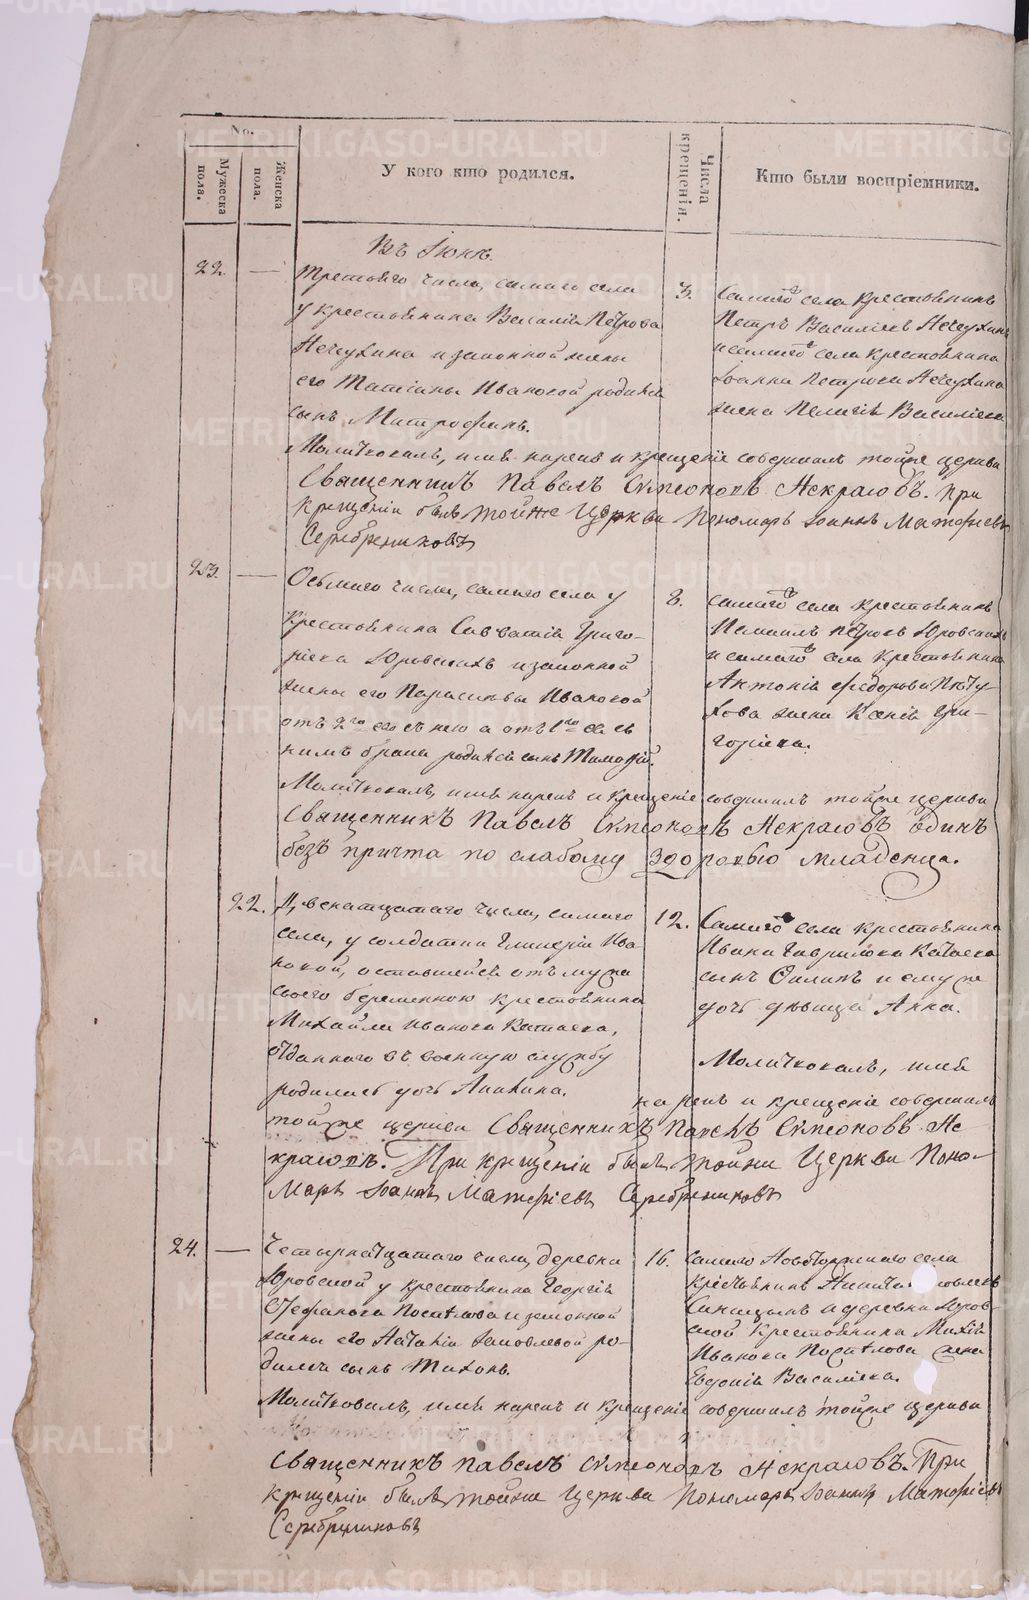 No.
Мужеска пола.
Женска пола.
У кого кто родился.
Числа крещенія.
Кто были воспріемники.
Въ Іюнѣ.
22. —
Третьяго числа, самаго села
у крестьянина Василія Петрова
Нечухина и законной жены
его Татіаны Ивановой родился
сынъ Митрофанъ.
3.
Самаго села крестьянинъ
Петръ Василіевъ Нечухинъ
и самаго села крестьянина
Іоанна Петрова Нечухина
жена Пелагія Василіева
Молитвовалъ, имя нарекъ и крещеніе совершилъ тойже церкви
Священникъ Павелъ Симеоновъ Некрасовъ. При
крещеніи былъ тойже Церкви Пономарь Іоаннъ Матфіевъ
Серебрениковъ
23. —
Осьмаго числа, самаго села у
крестьянина Савватія Григо-
ріева Юровскихъ и законной
жены его Парасковьи Ивановой
отъ 2го его съ нею а отъ 1го ея съ
нимъ брака родился сынъ Тимофій.
8.
самаго села крестьянинъ
Измаилъ Петровъ Юровскихъ
и самаго села крестьянина
Антонія Федорова Пѣту-
хова жена Ксенія Гри-
горіева.
Молитвовалъ, имя нарекъ и крещеніе совершилъ тойже церкви
Священникъ Павелъ Симеоновъ Некрасовъ одинъ
безъ причта по слабому здоровью младенца.
22.
Двенатцатаго числа, самаго
села, у солдатки Гликеріи Ива
новой, оставшейся отъ мужа
своего беременною крестьянина
Михайла Иванова Катаева,
отданнаго въ военную службу
родилась дочь Акилина.
12.
Самаго села крестьянина
Ивана Гаврилова Катаева
сынъ Филипъ и емуже
дочь дѣвица Анна.
Молитвовалъ, имя
нарекъ и крещеніе совершилъ
тойже церкви Священникъ Павелъ Симеоновъ Не
красовъ. При крещеніи былъ тойже Церкви Поно-
марь Іоаннъ Матфіевъ Серебрениковъ
24. —
Четырнатцатаго числа, деревни
Юровской у крестьянина Георгія
Стефанова Поспѣлова и законной
жены его Наталіи Іаковлевой ро-
дился сынъ Тихонъ.
16.
самаго села
крестьянинъ
Синицынъ и деревни Юров-
ской крестьянина
Иванова Поспѣлова жена
Евдокія Василіева.
Молитвовалъ, имя нарекъ и крещеніе совершилъ тойже церкви
Священникъ Павелъ Симеоновъ Некрасовъ. При
крещеніи былъ тойже Церкви Пономарь Іоаннъ Матфіевъ
Серебрениковъ
METRIKI.GASO-URAL.RU